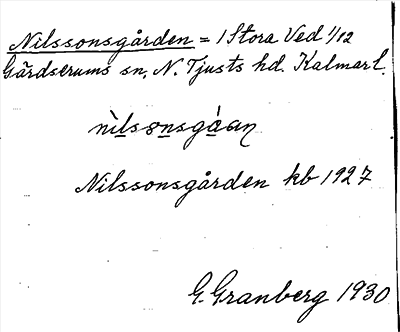 Nilssonsgården = 1 Stora Ved 1/12
Gärdserums sn, N. Tjusts hd. Kalmar l.
nìlsɷnsgá̀an
Nilssonsgården kb 1927
G. Granberg 1930